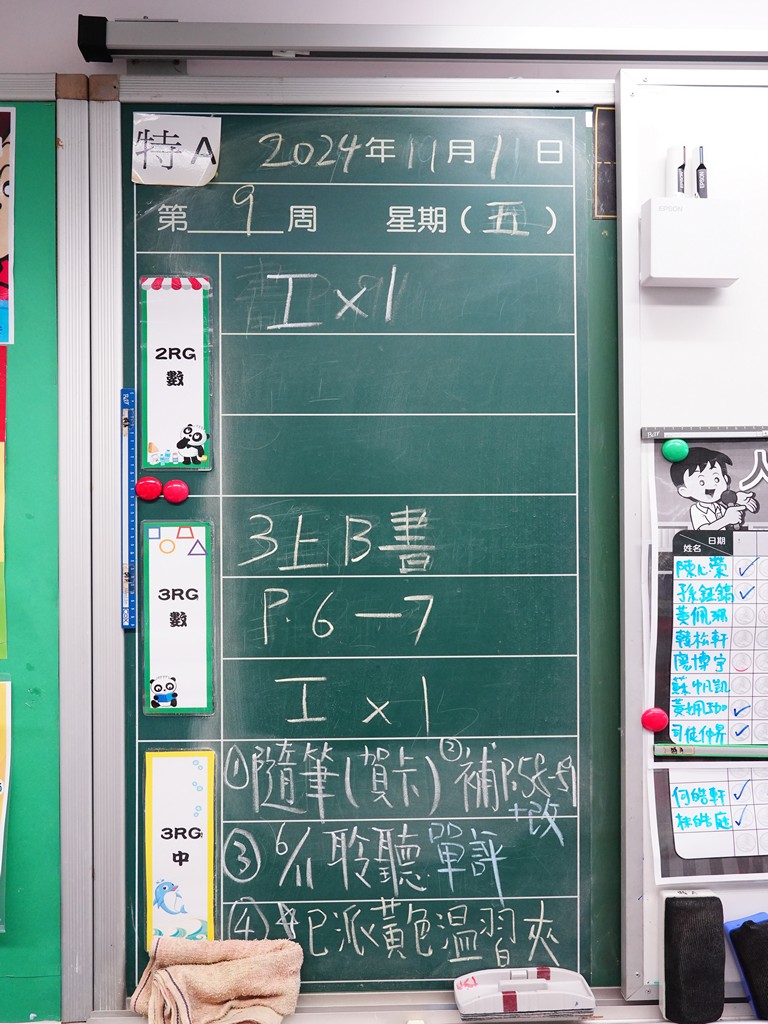 特A
2024年11月1日
第9周 星期(五)
2RG
數
工x1
3RG
數
3上B書
P.6-7
工x1
3RG
中
①隨筆(賀卡)②補P.58-59
+改
③6/11聆聽單評
④*已派黃色溫習夾
EPSON
人
日期
姓名
陳心榮
孫鉦鎬
黃佩珊
韓松軒
廖博宇
蘇帆凱
司徒仲昇
何皓軒
林皓庭